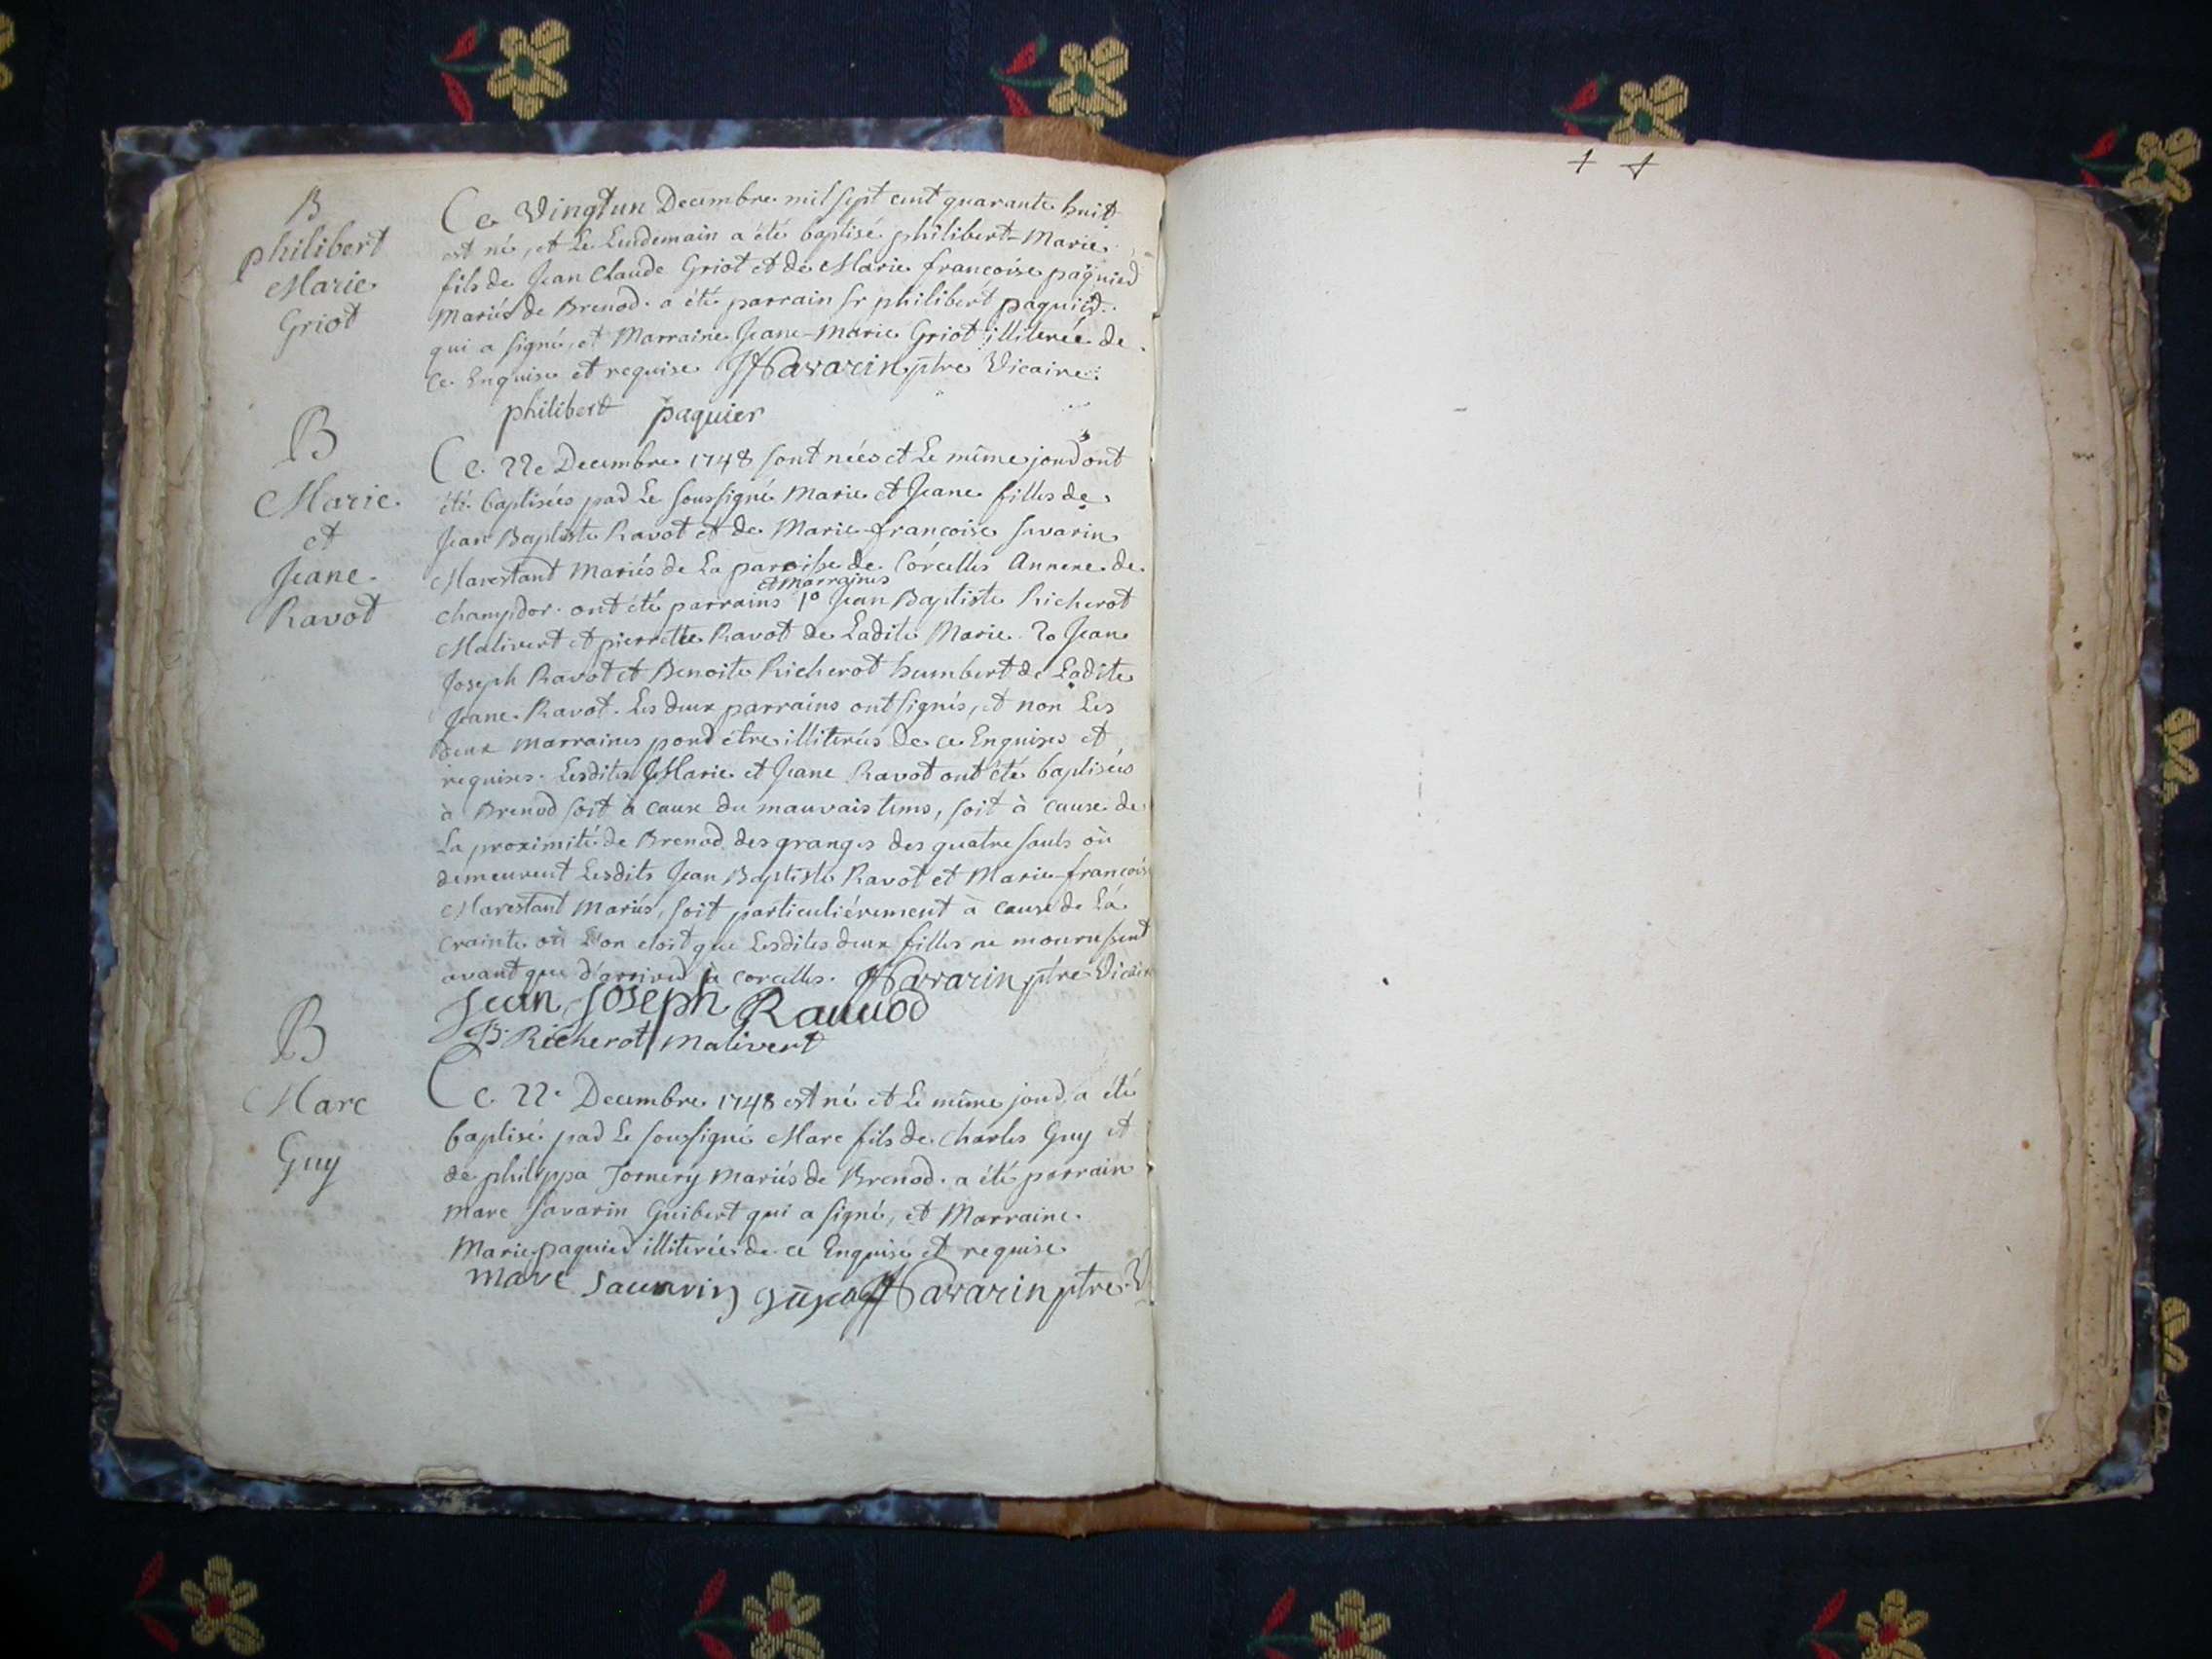 B
philibert
Marie
Griot
Ce Vingtun Decembre mil sept cent quarante huit
est né, et Le Lendemain a été baptisé philibert-Marie
fils de Jean Claude Griot et de Marie françoise paquier
Mariés de Brenod. a été parrain Sr philibert paquier
qui a signé, et Marraine Jeane-Marie Griot illiterée de
ce Enquise et requise Savarin ptre Vicaire
philibert paquier
B
Marie
et
Jeane
Ravot
Ce 22e Decembre 1748 sont nées et Le même jour ont
été baptisées par Le soussigné Marie et Jeane filles de
Jean Baptiste Ravot et de Marie-françoise Savarin
Marestant Mariés de La paroisse de Corcelles Annexe de
Champdor. ont été parrains et marraines 1o Jean Baptiste Richerot
Malivert et pierrette Ravot de Ladite Marie. 2o Jean
Joseph Ravot et Benoite Richerot humbert de Ladite
Jeane Ravot. Les deux parrains ont signés, et non Les
deux marraines pour être illiterées de ce Enquises et
requises. Lesdites Marie et Jeane Ravot ont été baptisées
à Brenod soit à cause du mauvais tems, soit à cause de
La proximité de Brenod des granges des quatre sauts où
demeurent Lesdits Jean Baptiste Ravot et Marie-françoise
Marestant Mariés, soit particuliérement à cause de La
crainte où L'on etoit que Lesdites deux filles ne mourussent
avant que d'arriver à corcelles. Savarin ptre Vicaire
Jean Joseph Rauuod
B. Richerot Malivert
B
Marc
Guy
Ce 22e Decembre 1748 est né et Le même jour a été
baptisé par Le soussigné Marc fils de Charles Guy et
de philippa Jomery Mariés de Brenod. a été parrain
marc Savarin Guibert qui a signé, et Marraine
Marie paquier illiterée de ce Enquise et requise
marc Sauarin Savarin ptre V